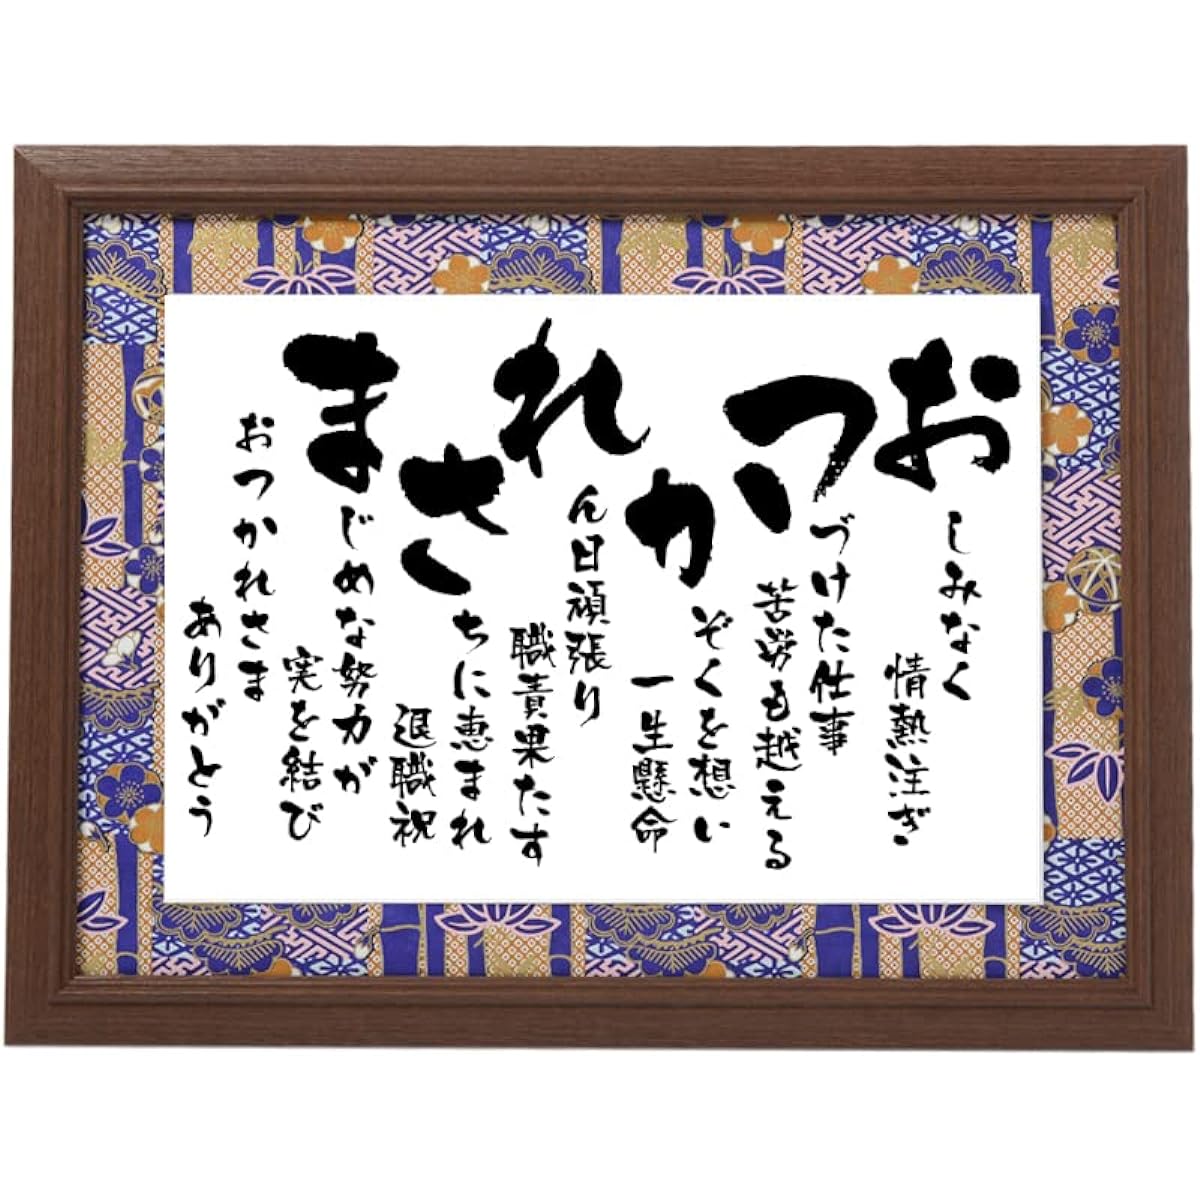 おしみなく
情熱注ぎ
つづけた仕事
苦労も越える
かぞくを想い
一生懸命
れん日頑張り
職責果たす
さちに恵まれ
退職祝
まじめな努力が
実を結び
おつかれさま
ありがとう